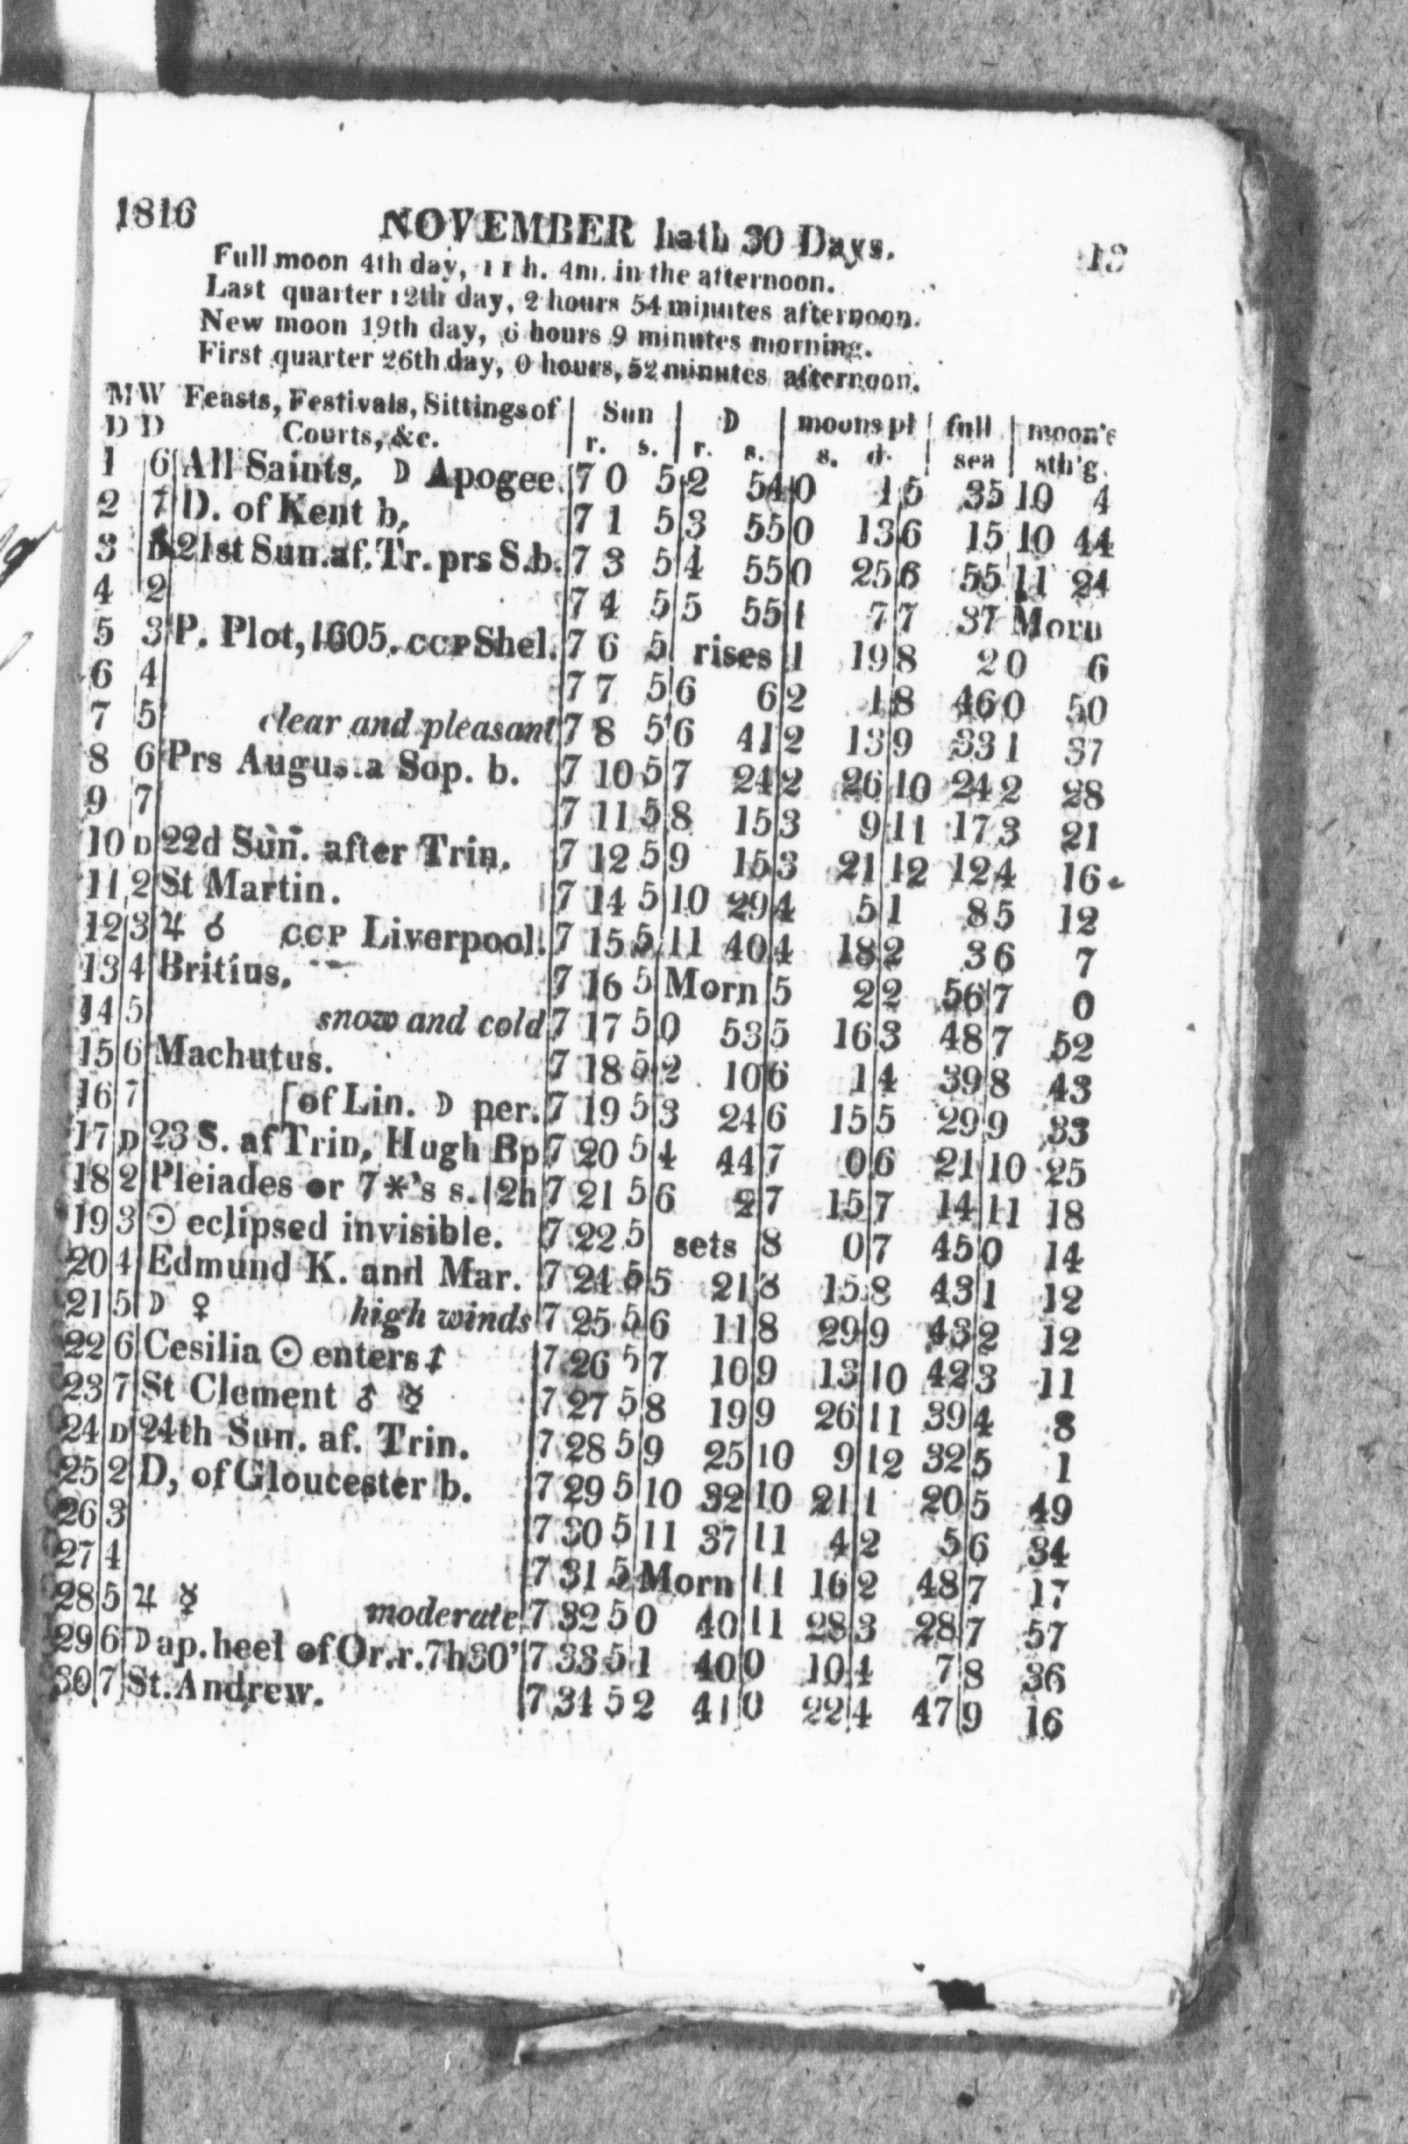 1816 NOVEMBER hath 30 Days. 13
Full moon 4th day, 11h. 4m. in the afternoon.
Last quarter 12th day, 2 hours 54 minutes afternoon.
New moon 19th day, 6 hours 9 minutes morning.
First quarter 26th day, 0 hours, 52 minutes afternoon.
M W Feasts, Festivals, Sittings of Sun ☽ moons pl full moon's
D D Courts, &c. r. s. r. s. s. d. sea sth'g.
1 6 All Saints, ☽ Apogee. 7 0 5 2 54 0 1 5 35 10 4
2 7 D. of Kent b. 7 1 5 3 55 0 13 6 15 10 44
3 D 21st Sun. af. Tr. prs S. b. 7 3 5 4 55 0 25 6 55 11 24
4 2 7 4 5 5 55 1 7 7 37 Morn
5 3 P. Plot, 1605. CCP Shel. 7 6 5 rises 1 19 8 2 0 6
6 4 7 7 5 6 6 2 1 8 46 0 50
7 5 clear and pleasant 7 8 5 6 41 2 13 9 33 1 37
8 6 Prs Augusta Sop. b. 7 10 5 7 24 2 26 10 24 2 28
9 7 7 11 5 8 15 3 9 11 17 3 21
10 D 22d Sun. after Trin. 7 12 5 9 15 3 21 12 12 4 16
11 2 St Martin. 7 14 5 10 29 4 5 1 8 5 12
12 3 ♃ ♂ CCP Liverpool. 7 15 5 11 40 4 18 2 3 6 7
13 4 Britius. 7 16 5 Morn 5 2 2 56 7 0
14 5 snow and cold 7 17 5 0 53 5 16 3 48 7 52
15 6 Machutus. 7 18 5 2 10 6 1 4 39 8 43
16 7 [of Lin. ☽ per. 7 19 5 3 24 6 15 5 29 9 33
17 D 23 S. af Trin, Hugh Bp 7 20 5 4 44 7 0 6 21 10 25
18 2 Pleiades or 7*'s s. 12h 7 21 5 6 2 7 15 7 14 11 18
19 3 ☉ eclipsed invisible. 7 22 5 sets 8 0 7 45 0 14
20 4 Edmund K. and Mar. 7 24 5 5 21 8 15 8 43 1 12
21 5 ☽ ♀ high winds 7 25 5 6 11 8 29 9 43 2 12
22 6 Cesilia ☉ enters ♐ 7 26 5 7 10 9 13 10 42 3 11
23 7 St Clement ♂ ☿ 7 27 5 8 19 9 26 11 39 4 8
24 D 24th Sun. af. Trin. 7 28 5 9 25 10 9 12 32 5 1
25 2 D, of Gloucester b. 7 29 5 10 32 10 21 1 20 5 49
26 3 7 30 5 11 37 11 4 2 5 6 34
27 4 7 31 5 Morn 11 16 2 48 7 17
28 5 ♃ ☿ moderate 7 32 5 0 40 11 28 3 28 7 57
29 6 ☽ ap. heel of Or. r. 7h30' 7 33 5 1 40 0 10 4 7 8 36
30 7 St. Andrew. 7 34 5 2 41 0 22 4 47 9 16